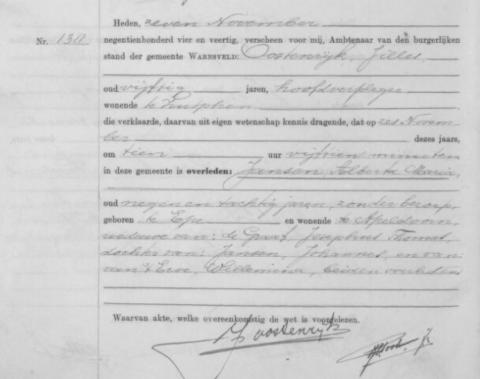 Heden, zeven November
Nr. 130. negentienhonderd vier en veertig, verscheen voor mij, Ambtenaar van den burgerlijken
stand der gemeente WARNSVELD: Oostenrijk, Gilles,
oud vijftig jaren, hoofdverpleger
wonende te Zutphen
die verklaarde, daarvan uit eigen wetenschap kennis dragende, dat op zes Novem-
ber dezes jaars,
om tien uur vijftien minuten
in deze gemeente is overleden: Jansen, Alberta Maria,
oud negen en tachtig jaren, zonder beroep,
geboren te Epe en wonende te Apeldoorn,
weduwe van: de Graaf, Josephus Thomas,
dochter van: Jansen, Johannes, en van:
van 't Erve, Willemina, beiden overleden
Waarvan akte, welke overeenkomstig de wet is voorgelezen.
G oostenrijk